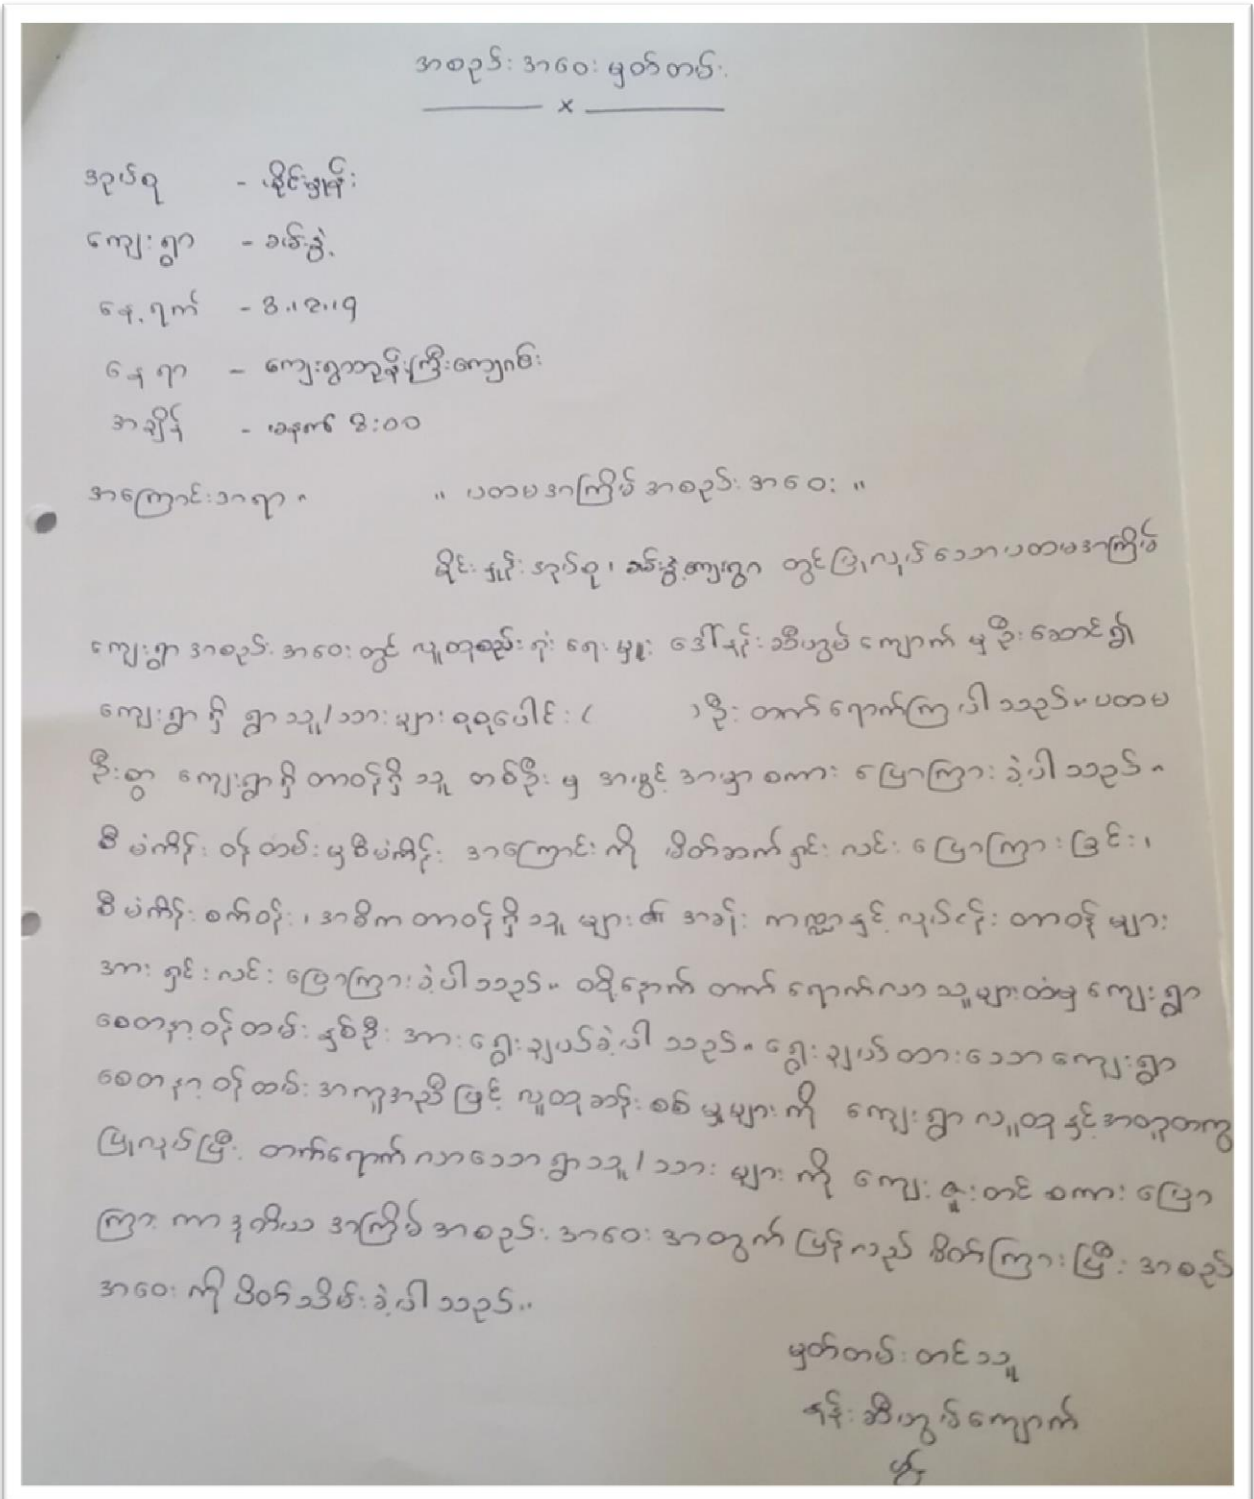 အစည်းအဝေးမှတ်တမ်း
x
အုပ်စု - မိုင်းမှုန်း
ကျေးရွာ - ခမ်းနွဲ့
နေ့ရက် - 3.12.19
နေရာ - ကျေးရွာဘုန်းကြီးကျောင်း
အချိန် - မနက် 8:00
အကြောင်းအရာ ။ " ပထမအကြိမ်အစည်းအဝေး "
အုပ်စု၊ ခမ်းနွဲ့ကျေးရွာ တွင်ပြုလုပ်သောပထမအကြိမ်
ကျေးရွာအစည်းအဝေးတွင် လူထုစည်းရုံးရေးမှူး ဒေါ်နန်းဆီဟွမ်ကျောက် မှဦးဆောင်၍
ကျေးရွာရှိ ရွာသူ/သားများစုစုပေါင်း ( ) ဦး တက်ရောက်ကြပါသည်။ ပထမ
ဦးစွာ ကျေးရွာရှိတာဝန်ရှိသူ တစ်ဦးမှ အဖွင့်အမှာစကား ပြောကြားခဲ့ပါသည်။
စီမံကိန်းဝန်ထမ်းမှစီမံကိန်း အကြောင်းကို မိတ်ဆက်ရှင်းလင်းပြောကြားခြင်း၊
စီမံကိန်းစက်ဝန်း၊ အဓိကတာဝန်ရှိသူများ၏ အခန်းကဏ္ဍနှင့်လုပ်ငန်းတာဝန်များ
အားရှင်းလင်းပြောကြားခဲ့ပါသည်။ ထို့နောက် တက်ရောက်လာသူများထဲမှ ကျေးရွာ
စေတနာ့ဝန်ထမ်းနှစ်ဦး အားရွေးချယ်ခဲ့ပါသည်။ ရွေးချယ်ထားသောကျေးရွာ
စေတနာ့ဝန်ထမ်းအကူအညီဖြင့် လူထုဆန်းစစ်မှုများကို ကျေးရွာလူထုနှင့်အတူတကွ
ပြုလုပ်ပြီး တက်ရောက်လာသောရွာသူ/သားများကို ကျေးဇူးတင်စကားပြော
ကြားကာ ဒုတိယအကြိမ်အစည်းအဝေးအတွက် ပြန်လည်ဖိတ်ကြားပြီး အစည်း
အဝေးကိုပိတ်သိမ်းခဲ့ပါသည်။
မှတ်တမ်းတင်သူ
နန်းဆီဟွမ်ကျောက်